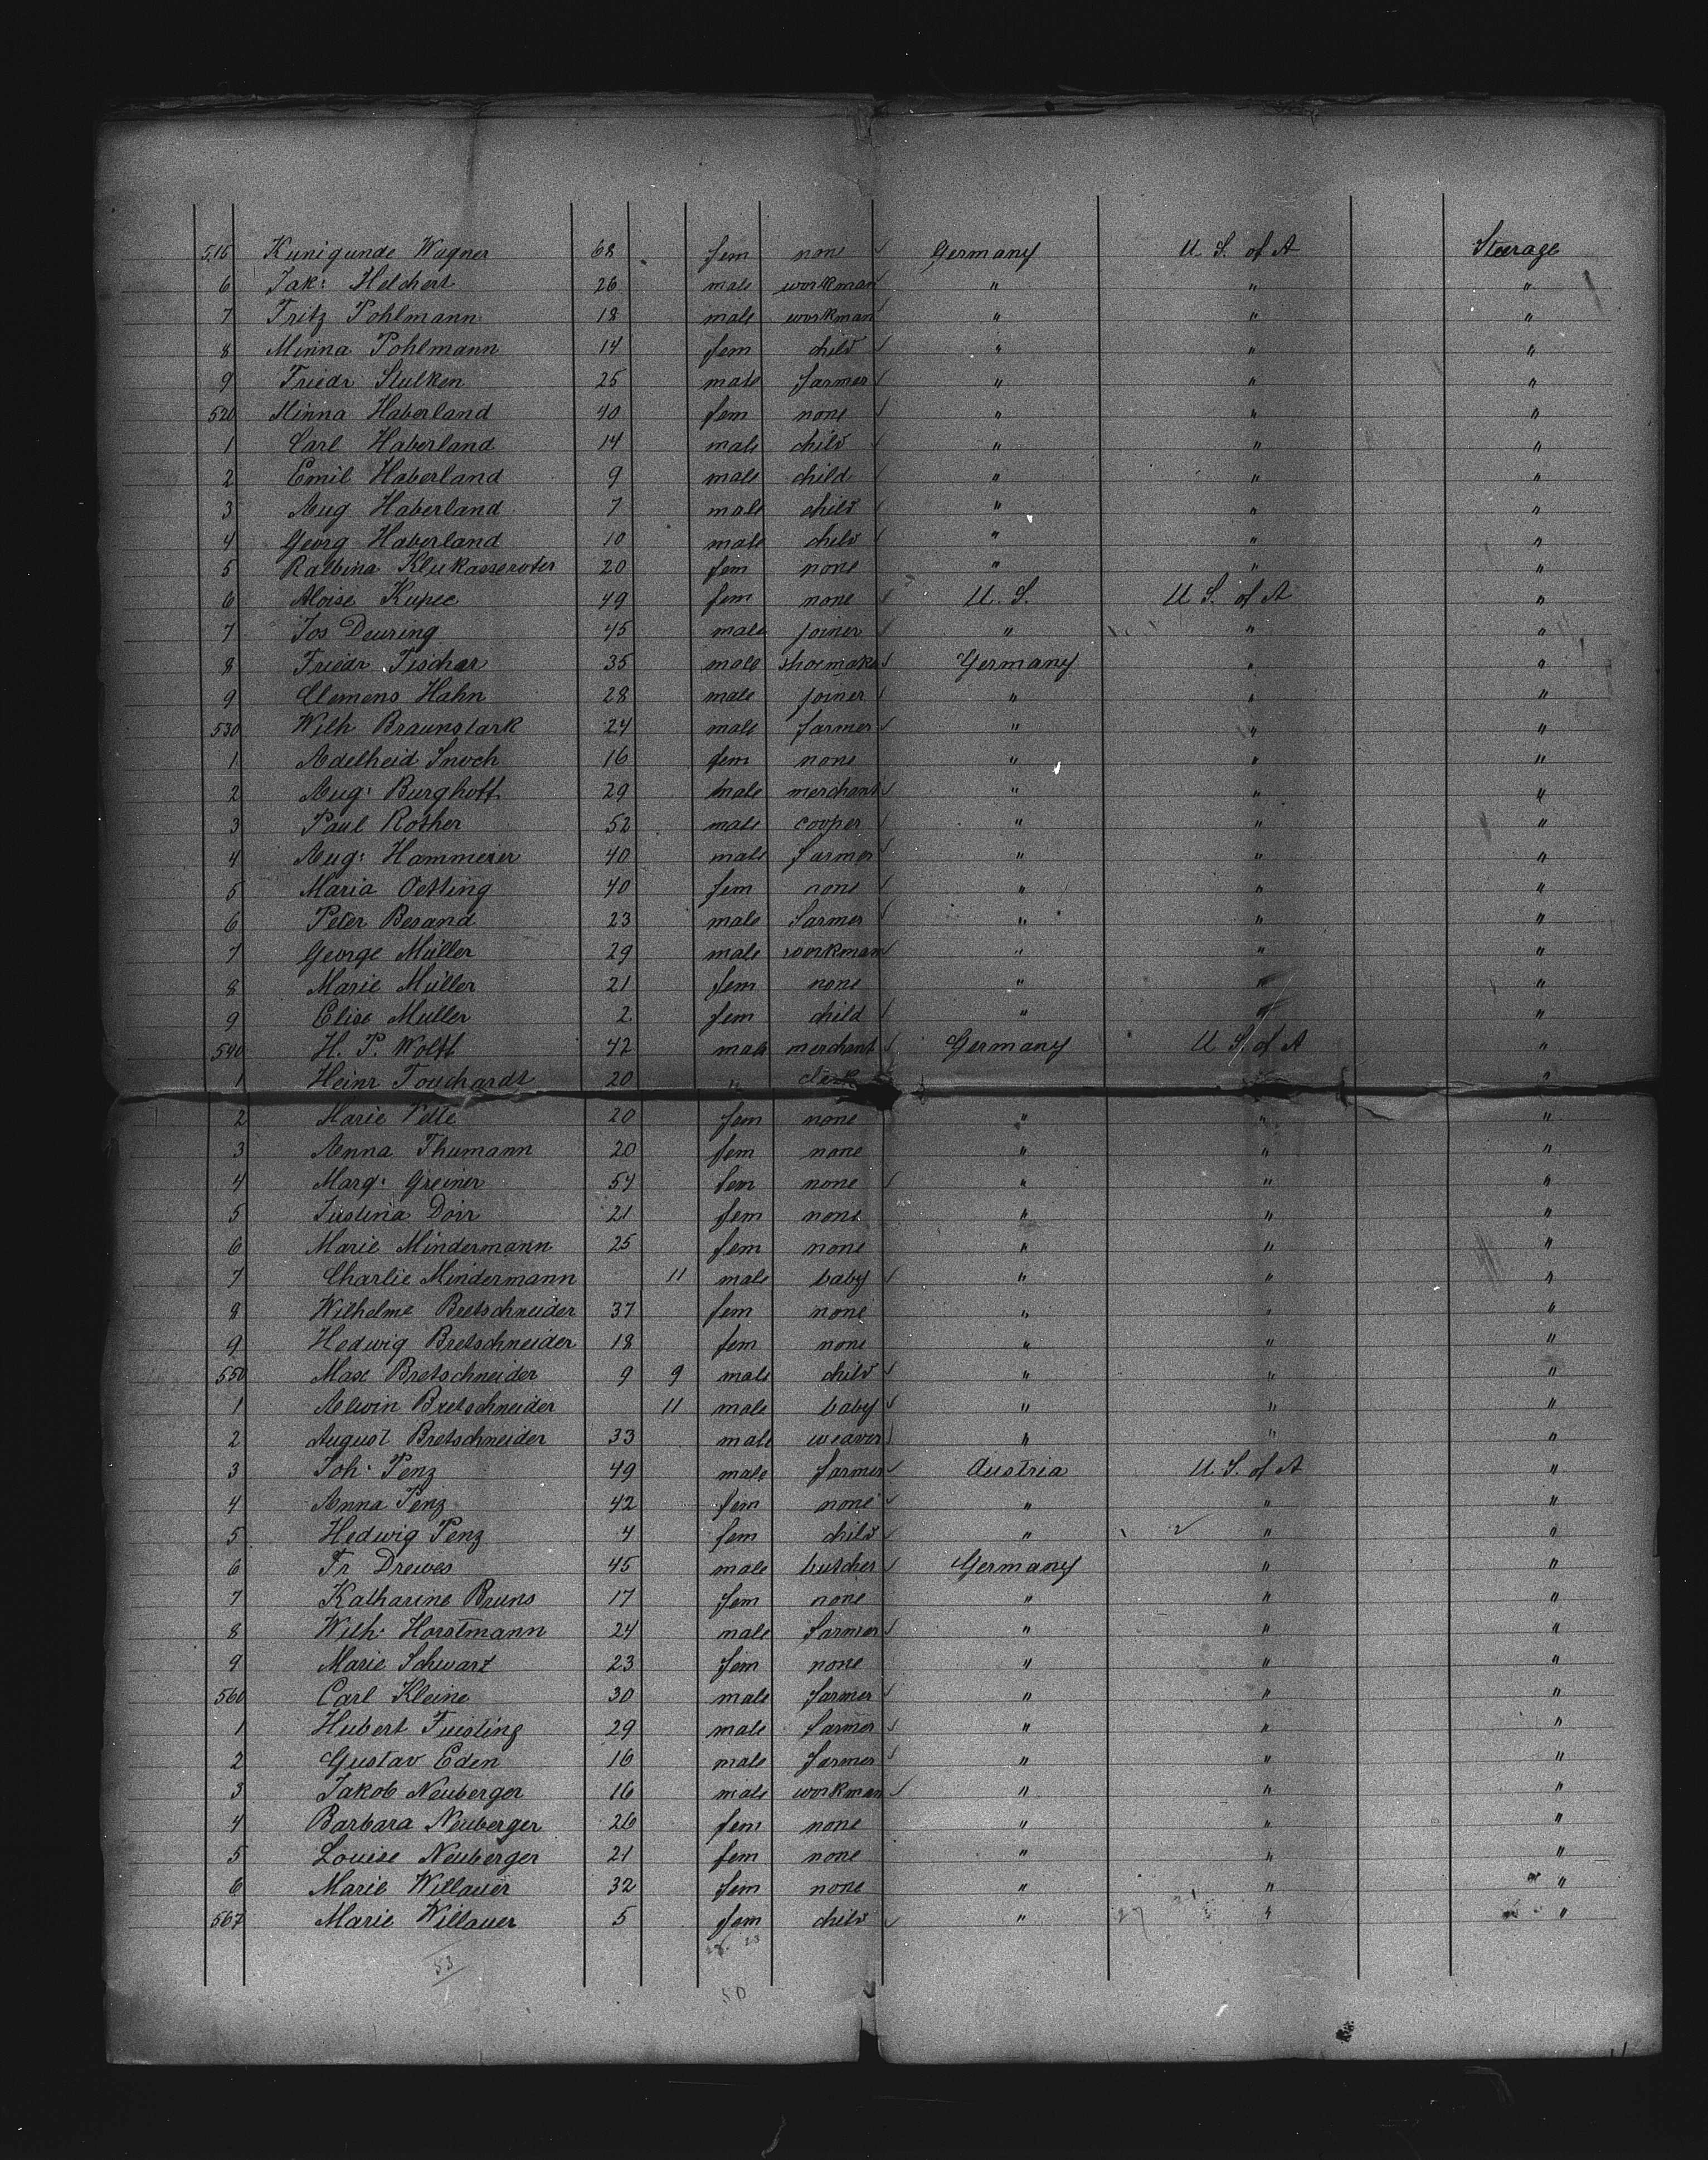 515 Kunigunde Wagner 68 fem none Germany U. S. of A Steerage
6 Jak: Helchert 26 male workman " " "
7 Fritz Pohlmann 18 male workman " " "
8 Minna Pohlmann 14 fem child " " "
9 Friedr Stulken 25 male farmer " " "
520 Minna Haberland 40 fem none " " "
1 Carl Haberland 14 male child " " "
2 Emil Haberland 9 male child " " "
3 Aug Haberland 7 male child " " "
4 Georg Haberland 10 male child " " "
5 20 fem none " " "
6 Aloise Kupec 49 fem none U. S. U. S. of A "
7 Jos Deuring 45 male joiner " " "
8 Friedr Fischer 35 male shoemaker Germany " "
9 Clemens Hahn 28 male joiner " " "
530 Wilh Braunstark 24 male farmer " " "
1 Adelheid Snoch 16 fem none " " "
2 Aug: Burghoff 29 male merchant " " "
3 Paul Rother 52 male cooper " " "
4 Aug: Hammerer 40 male farmer " " "
5 Maria Oetting 40 fem none " " "
6 Peter Besand 23 male farmer " " "
7 George Müller 29 male workman " " "
8 Marie Müller 21 fem none " " "
9 Elise Müller 2 fem child " " "
540 H. P. Wolff 42 male merchant Germany U S. of A "
1 Heinr Touchardt 20 " clerk "
2 Marie 20 fem none " " "
3 Anna Thumann 20 fem none " " "
4 Marg: Greiner 54 fem none " " "
5 Justina Dorr 21 fem none " " "
6 Marie Mindermann 25 fem none " " "
7 Charlie Mindermann 11 male baby " " "
8 Wilhelme Bretschneider 37 fem none " " "
9 Hedwig Bretschneider 18 fem none " " "
550 Max Bretschneider 9 9 male child " " "
1 Alwin Bretschneider 11 male baby " " "
2 August Bretschneider 33 male weaver " " "
3 Joh: Penz 49 male farmer Austria U. S. of A "
4 Anna Penz 42 fem none " " "
5 Hedwig Penz 4 fem child " " "
6 Fr Drewes 45 male butcher Germany " "
7 Katharine Bruns 17 fem none " " "
8 Wilh: Horstmann 24 male farmer " " "
9 Marie Schwarz 23 fem none " " "
560 Carl Kleine 30 male farmer " " "
1 Hubert Fuisting 29 male farmer " " "
2 Gustav Eden 16 male farmer " " "
3 Jakob Neuberger 16 male workman " " "
4 Barbara Neuberger 26 fem none " " "
5 Louise Neuberger 21 fem none " " "
6 Marie Willauer 32 fem none " " "
567 Marie Willauer 5 fem child " " "
53
50